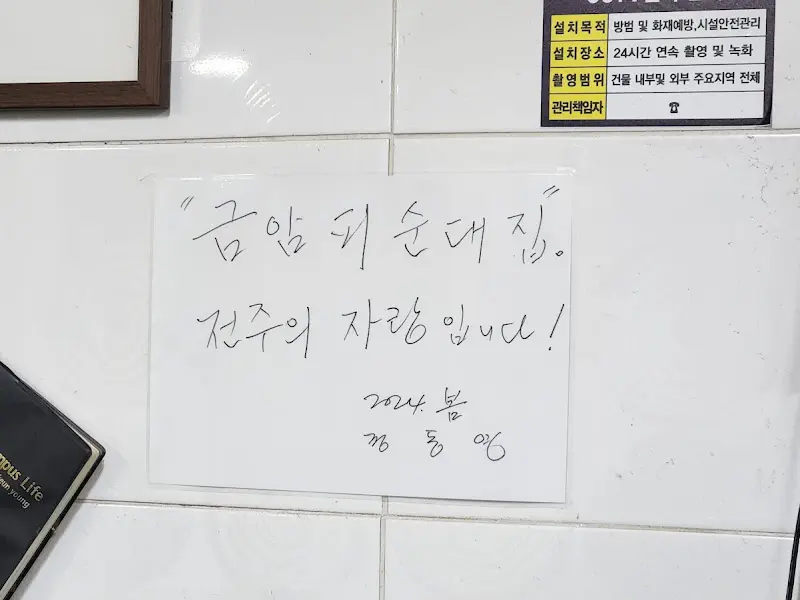 설치목적 방범 및 화재예방,시설안전관리
설치장소 24시간 연속 촬영 및 녹화
촬영범위 건물 내부및 외부 주요지역 전체
관리책임자 ☎
"금암 피순대 집".
전주의 자랑입니다!
2024. 봄
정 동 영
mpus Life
eun young